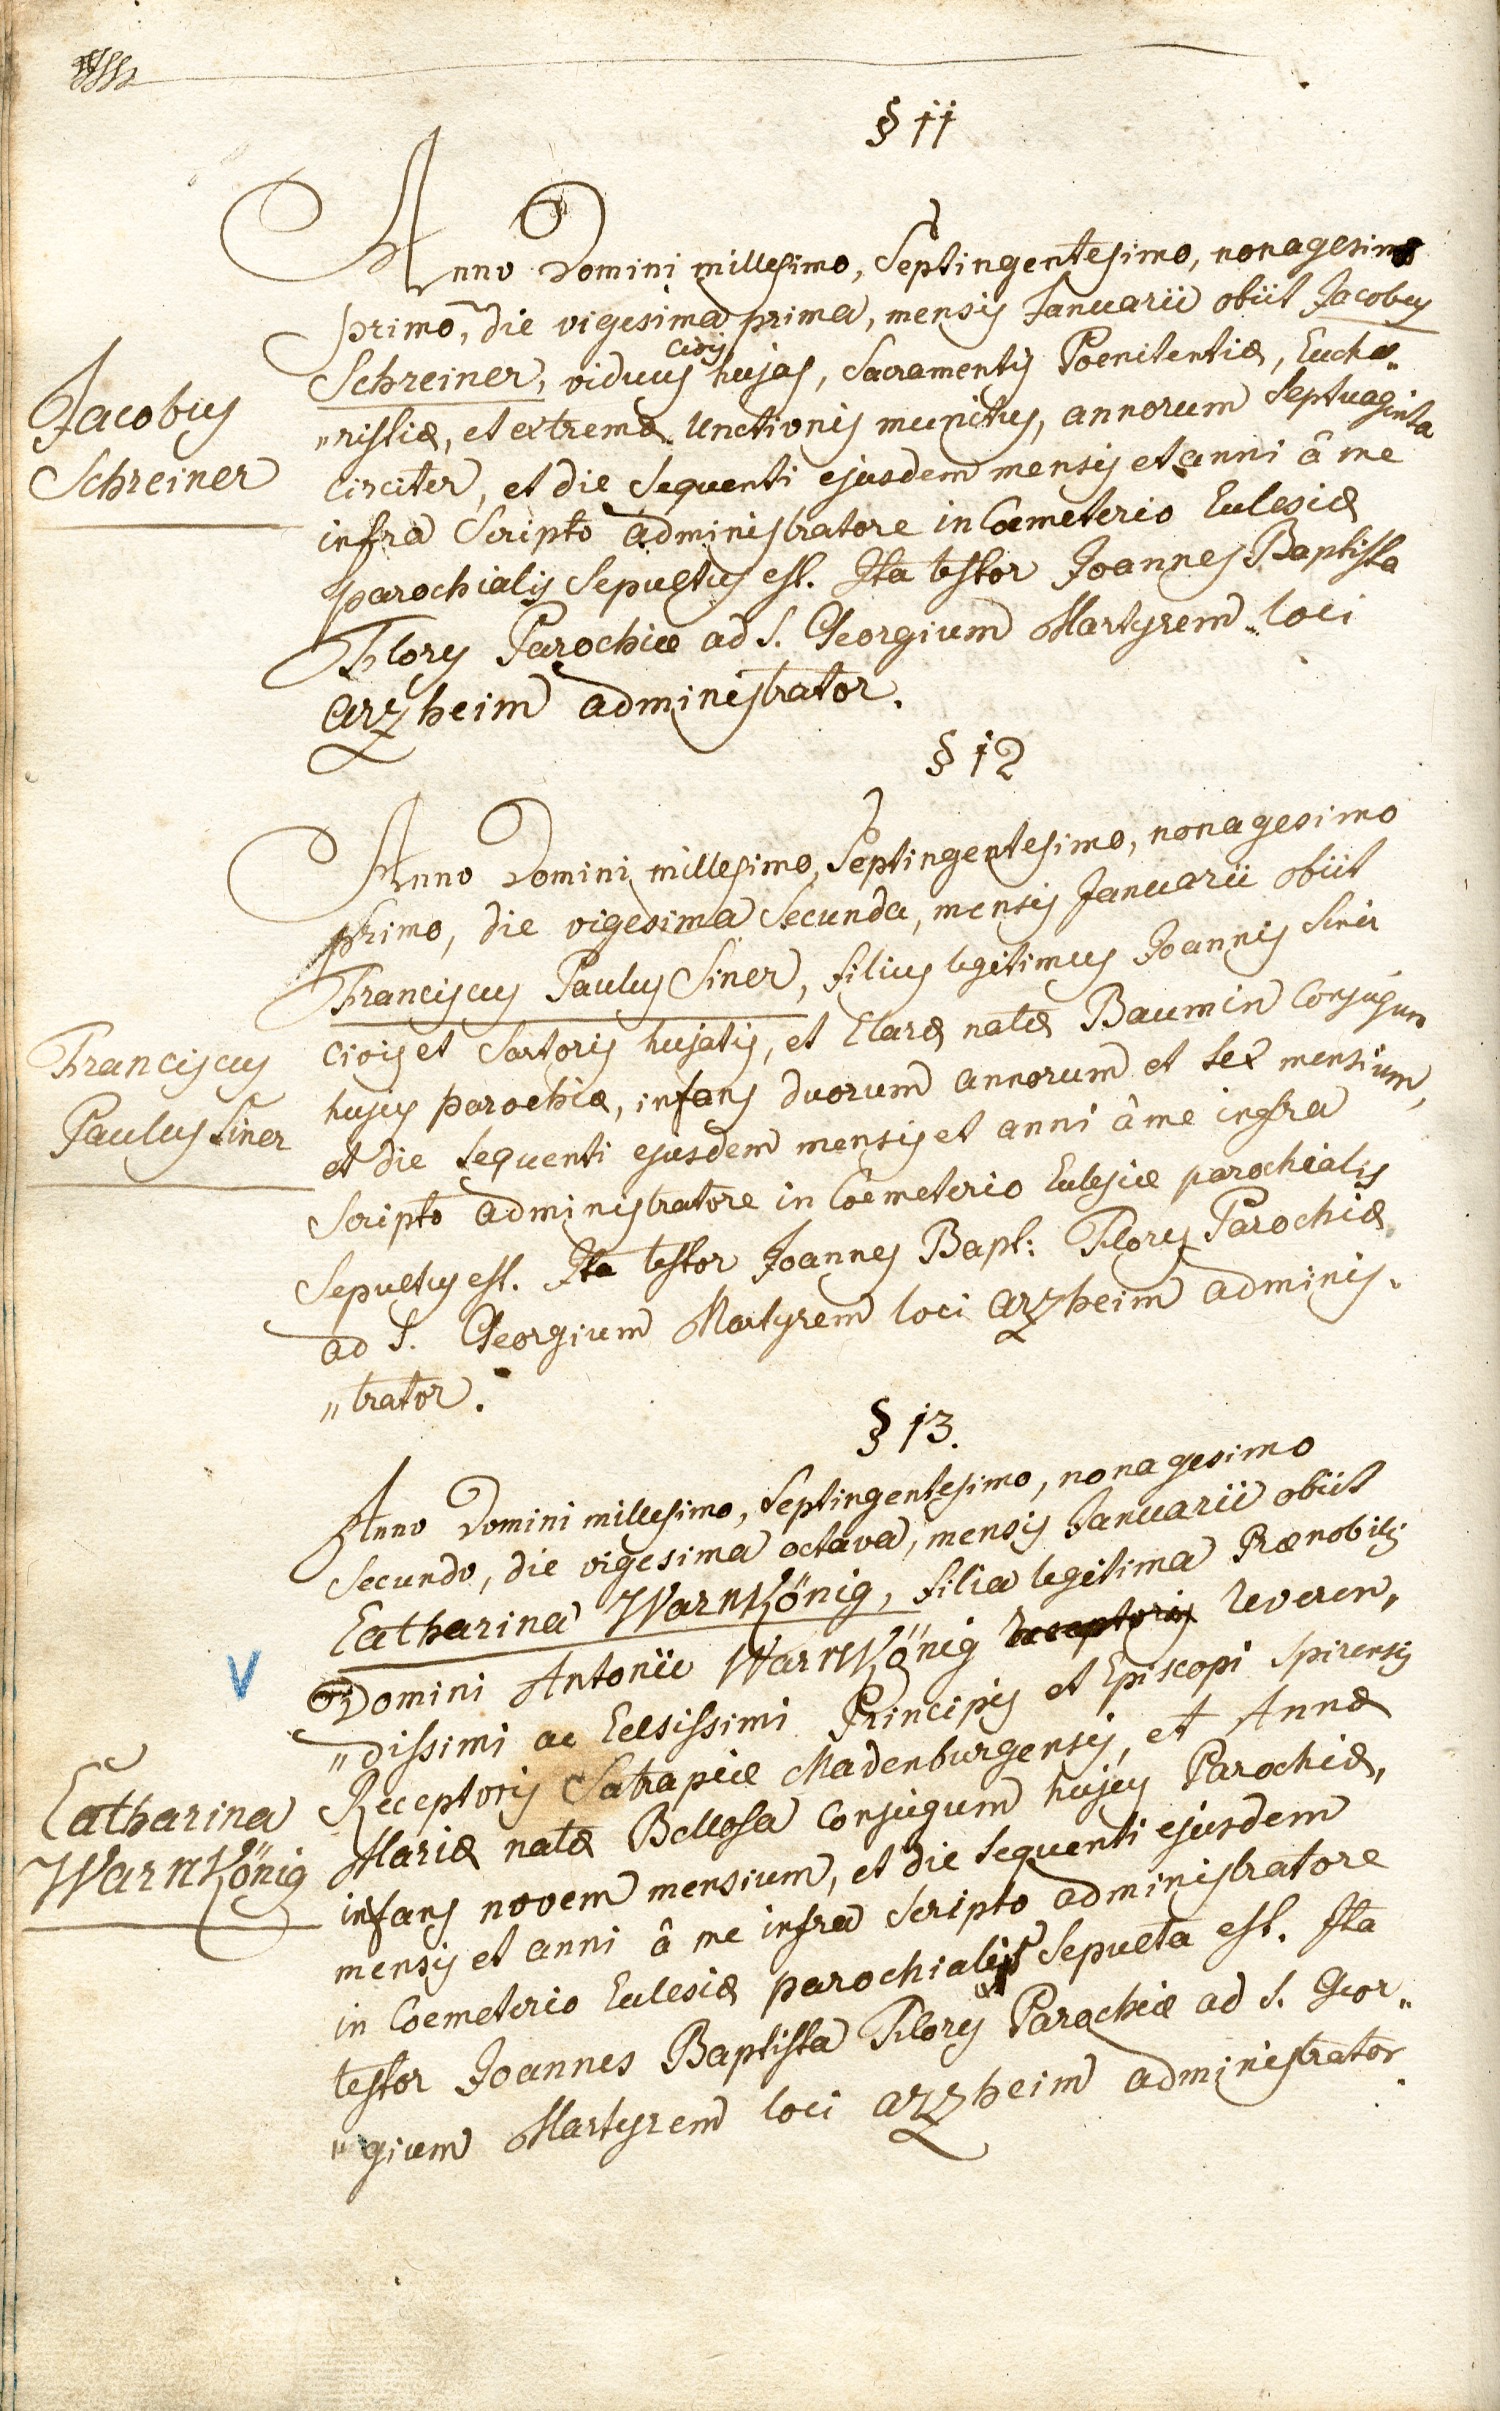 § 11
Anno Domini millesimo, Septingentesimo, nonagesimo
primo, die vigesima prima, mensis Januarii obiit Jacobus
Schreiner, viduus civis hujas, Sacramentis Poenitentiæ, Eucha„
„ristiæ, et extremæ Unctionis munitus, annorum Septuaginta
circiter, et die Sequenti ejusdem mensis et anni â me
infra Scripto administratore in Coemeterio Eclesiæ
parochialis Sepultus est. Ita testor Joannes Baptista
Flory Parochiæ ad S. Georgium Martyrem loci
arzheim administrator.
Jacobus
Schreiner
§ 12
Anno Domini millesimo, Septingentesimo, nonagesimo
primo, die vigesima Secunda, mensis Januarii obiit
Franciscus Paulus Siner, filius legitimus Joannis Siner
civis et Sartoris hujatis, et Claræ natæ Baumin Conjugum
hujus parochiæ, infans duorum annorum et sex mensium,
et die Sequenti ejusdem mensis et anni â me infra
Scripto administratore in Coemeterio Eclesiæ parochialis
Sepultus est. Ita testor Joannes Bapt: Flory Parochiæ
ad S. Georgium Martyrem loci arzheim adminis„
„trator.
Franciscus
Paulus Siner
§ 13.
Anno Domini millesimo, Septingentesimo, nonagesimo
Secundo, die vigesima octava, mensis Januarii obiit
Catharina WarnKönig, filia legitima Prænobilis
Domini Antonii WarnKönig Receptoris Reveren„
„dissimi ac Celsissimi Principis et Episcopi Spirensis
Receptoris Satrapiæ Madenburgensis, et Annæ
Mariæ natæ Bellosa Conjugum hujus Parochiæ,
infans novem mensium, et die Sequenti ejusdem
mensis et anni â me infra Scripto administratore
in Coemeterio Eclesiæ parochialis Sepulta est. Ita
testor Joannes Baptista Flory Parochiæ ad S. Geor„
„gium Martyrem loci arzheim administrator.
V
Catharina
WarnKönig